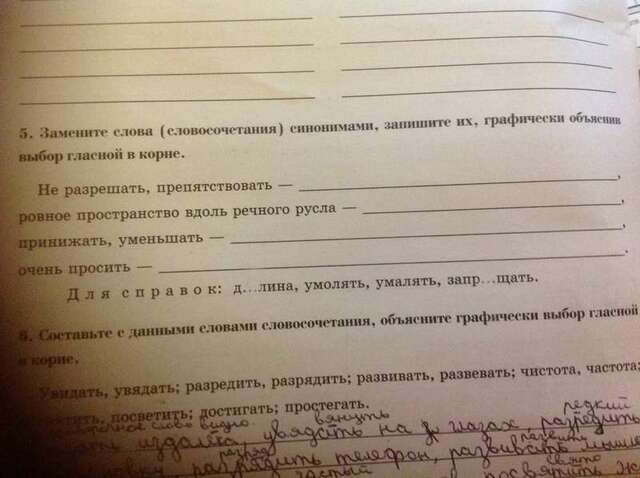 5. Замените слова (словосочетания) синонимами, запишите их, графически объяснив
выбор гласной в корне.
Не разрешать, препятствовать — ,
ровное пространство вдоль речного русла — ,
принижать, уменьшать — ,
очень просить — .
Для справок: д...лина, умолять, умалять, запр...щать.
6. Составьте с данными словами словосочетания, объясните графически выбор гласной
в корне.
Увидать, увядать; разредить, разрядить; развивать, развевать; чистота, частота;
посветить; достигать; простегать.
слово видно. вянуть редкий
издалека, увядать на глазах, разредить
разряд развить
разрядить телефон, развивать
частый свято
посвятить